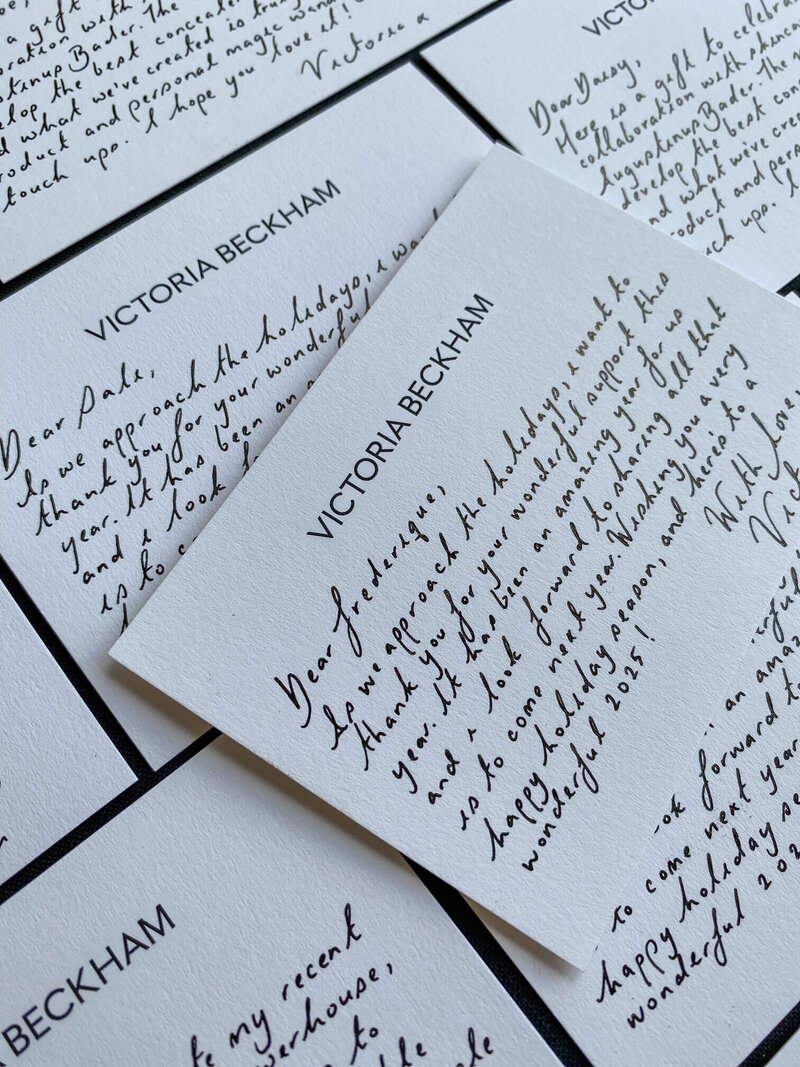 a gift
oration with
stinus Bader. The
elop the best concealer
d what we've created is truly
roduct and personal magic wand
touch ups. I hope you love it!
Victoria
VICTORIA
Dear Daisy,
Here is a gift to celebra
collaboration with skinca
Augustinus Bader. The
develop the best con
nd what we've crea
oduct and pers
ch ups. I
VICTORIA BECKHAM
Dear Dale,
As we approach the holidays, i want
thank you for your wonderful
year. It has been an
and i look
is to
VICTORIA BECKHAM
Dear Frederique,
As we approach the holidays, i want to
thank you for your wonderful support this
year. It has been an amazing year for us
and i look forward to sharing all that
is to come next year. Wishing you a very
happy holiday season, and here's to a
wonderful 2025!
With Love,
Vict
an amaz
ok forward t
to come next year
happy holiday se
wonderful 202
BECKHAM
te my recent
erhouse,
to